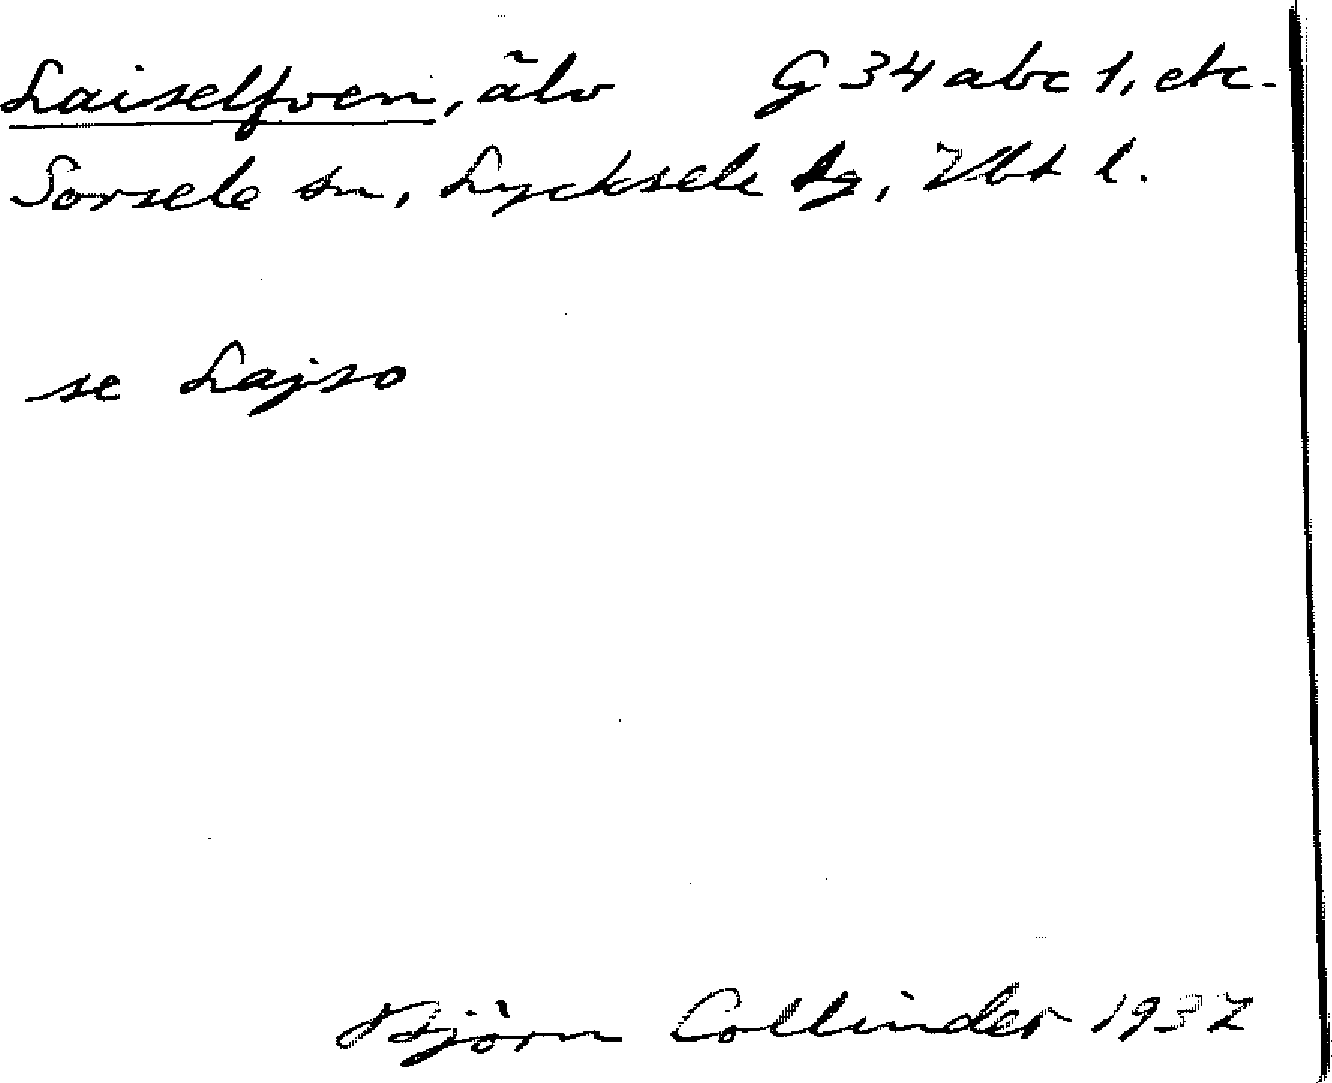 Laiselfven, älv G 34 abc 1, etc.
Sorsele sn, Lycksele tg, Vbt l.
se Lajso
Björn Collinder 1937